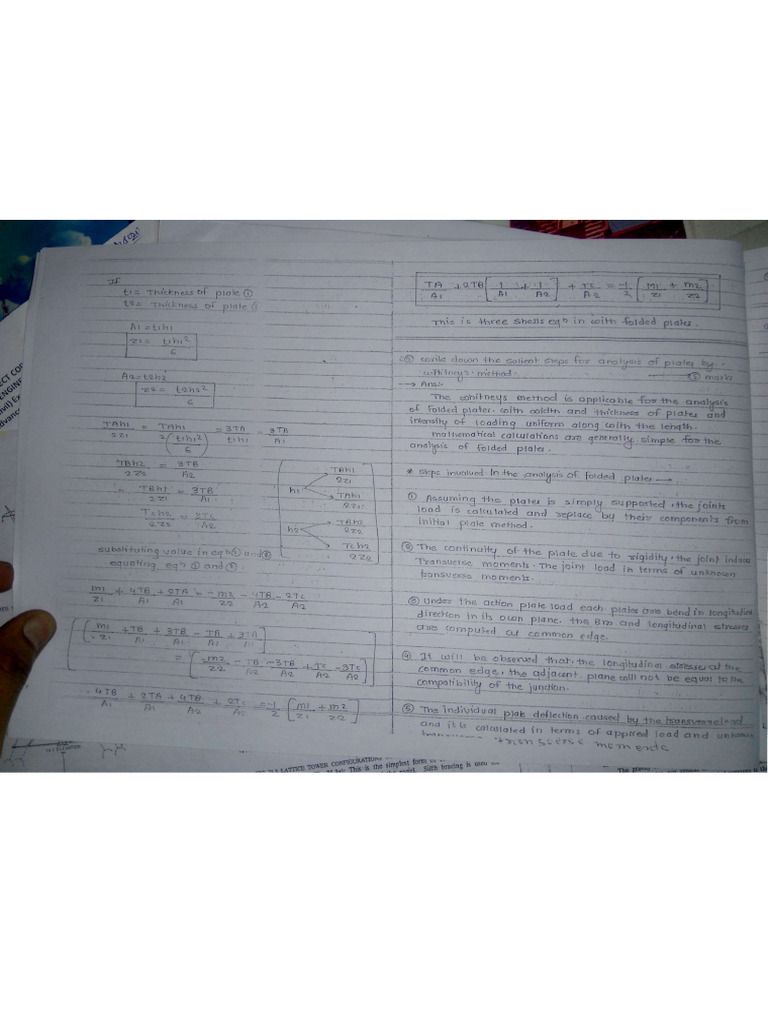 If
t1 = Thickness of plate ①
t2 = Thickness of plate
A1 = t1h1
z1 = t1h1²/6
A2 = t2h2
z2 = t2h2²/6
TAh1/2z1 = TAh1/2(t1h1²/6) = 3TA/t1h1 = 3TA/A1
TBh2/2z2 = 3TB/A2
= TBh1/2z1 = 3TB/A1
Tch2/2z2
h1 TBh1/2z1
TAh1/2z1
h2 TBh2/2z2
Tch2/2z2
substituting value in eqn ① and ②
equating eqn ① and
m1/z1 + 4TB/A1 + 2TA/A1 = -m2/z2 - 4TB/A2 - 2Tc/A2
[m1/z1 + TB/A1 + 3TB/A1 - TA/A1 + 3TA/A1]
= [-m2/z2 - TB/A2 - 3TB/A2 + Tc/A2 - 3Tc/A2]
4TB/A1 + 2TA/A1 + 4TB/A2 + 2Tc/A2 = -1/2 [m1/z1 + m2/z2]
TA/A1 + 2TB [1/A1 + 1/A2] + Tc/A2 = -1/2 [m1/z1 + m2/z2]
This is three shells eqn in with folded plates.
write down the salient steps for analysis of plates by
whitneys method. ⑤ marks
→ Ans:
The whitneys method is applicable for the analysis
of folded plates with width and thickness of plates and
intensity of loading uniform along with the length.
mathematical calculations are generally simple for the
analysis of folded plates.
* steps involved in the analysis of folded plates →.
① Assuming the plates is simply supported, the joints
load is calculated and replace by their components from
initial plate method.
② The continuity of the plate due to rigidity, the joint induce
Transverse moments. The joint load in terms of unknown
transverse moments.
③ Under the action plate load each plates are bend in longitudinal
direction in its own plane. the Bm and longitudinal stresses
are computed at common edge.
④ It will be observed that, the longitudinal stresses at the
common edge, the adjacent plane will not be equal to the
compatibility of the junction.
⑤ The individual plate deflection caused by the transverse load
and it is calculated in terms of applied load and unknown
moments
LATTICE TOWER CONFIGURATIONS
This is the simplest form
Such bracing is used